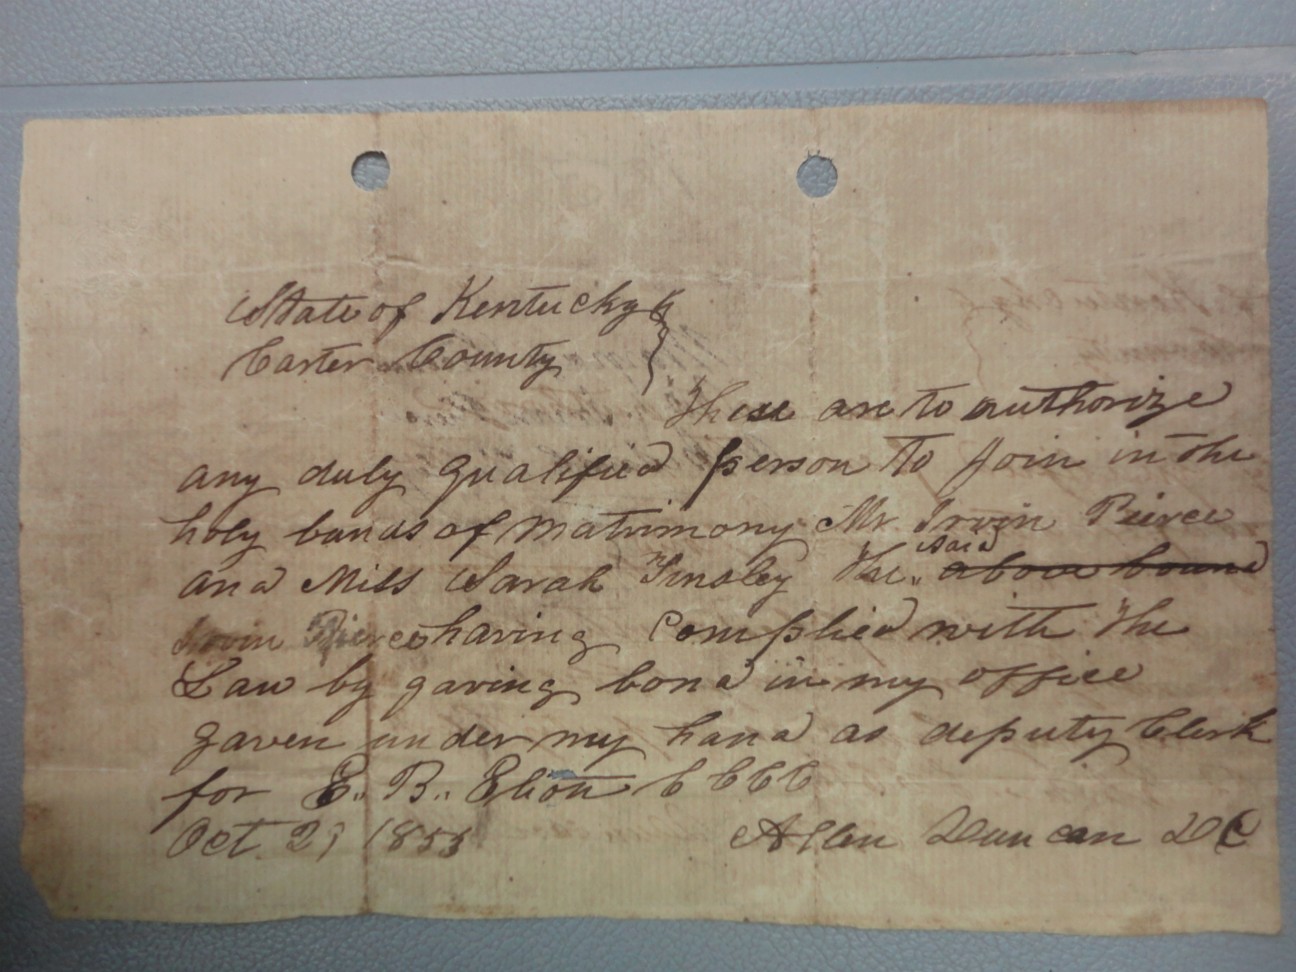 State of Kentucky
Carter County
These are to authorize
any duly qualified person to Join in the
holy bands of matrimony Mr. Irvin Pierce
and Miss Sarah Tinsley the said above bound
Irvin Pierce having Complied with the
Law by gaving bond in my office
gaven under my hand as deputy Clerk
for E. B. Elion C C C C
Oct 1853 Allen Duncan DC